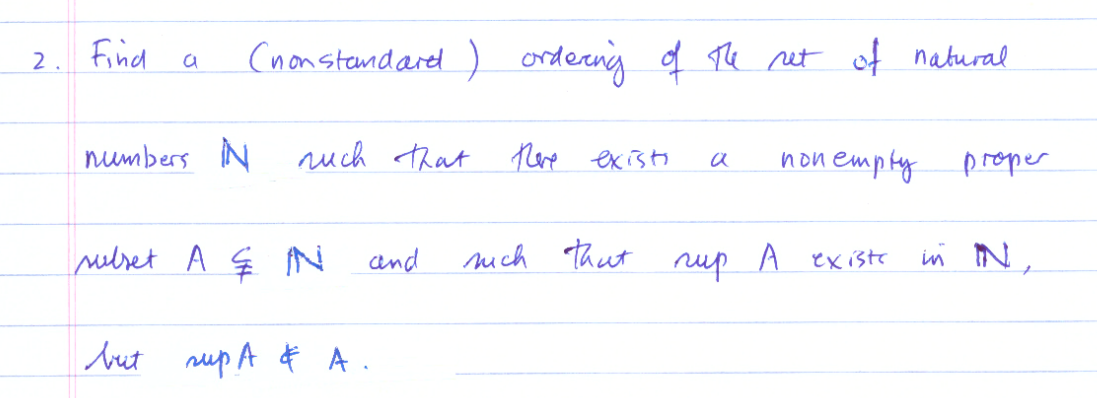 2. Find a (nonstandard) ordering of the set of natural
numbers ℕ such that there exists a nonempty proper
subset A ⊊ ℕ and such that sup A exists in ℕ,
but sup A ∉ A.